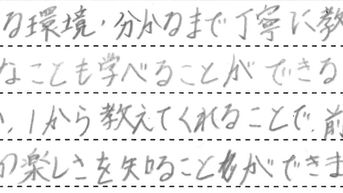 る環境・分かるまで丁寧に教
なことも学べることができる
、1から教えてくれることで、前
の楽しさを知ることができま